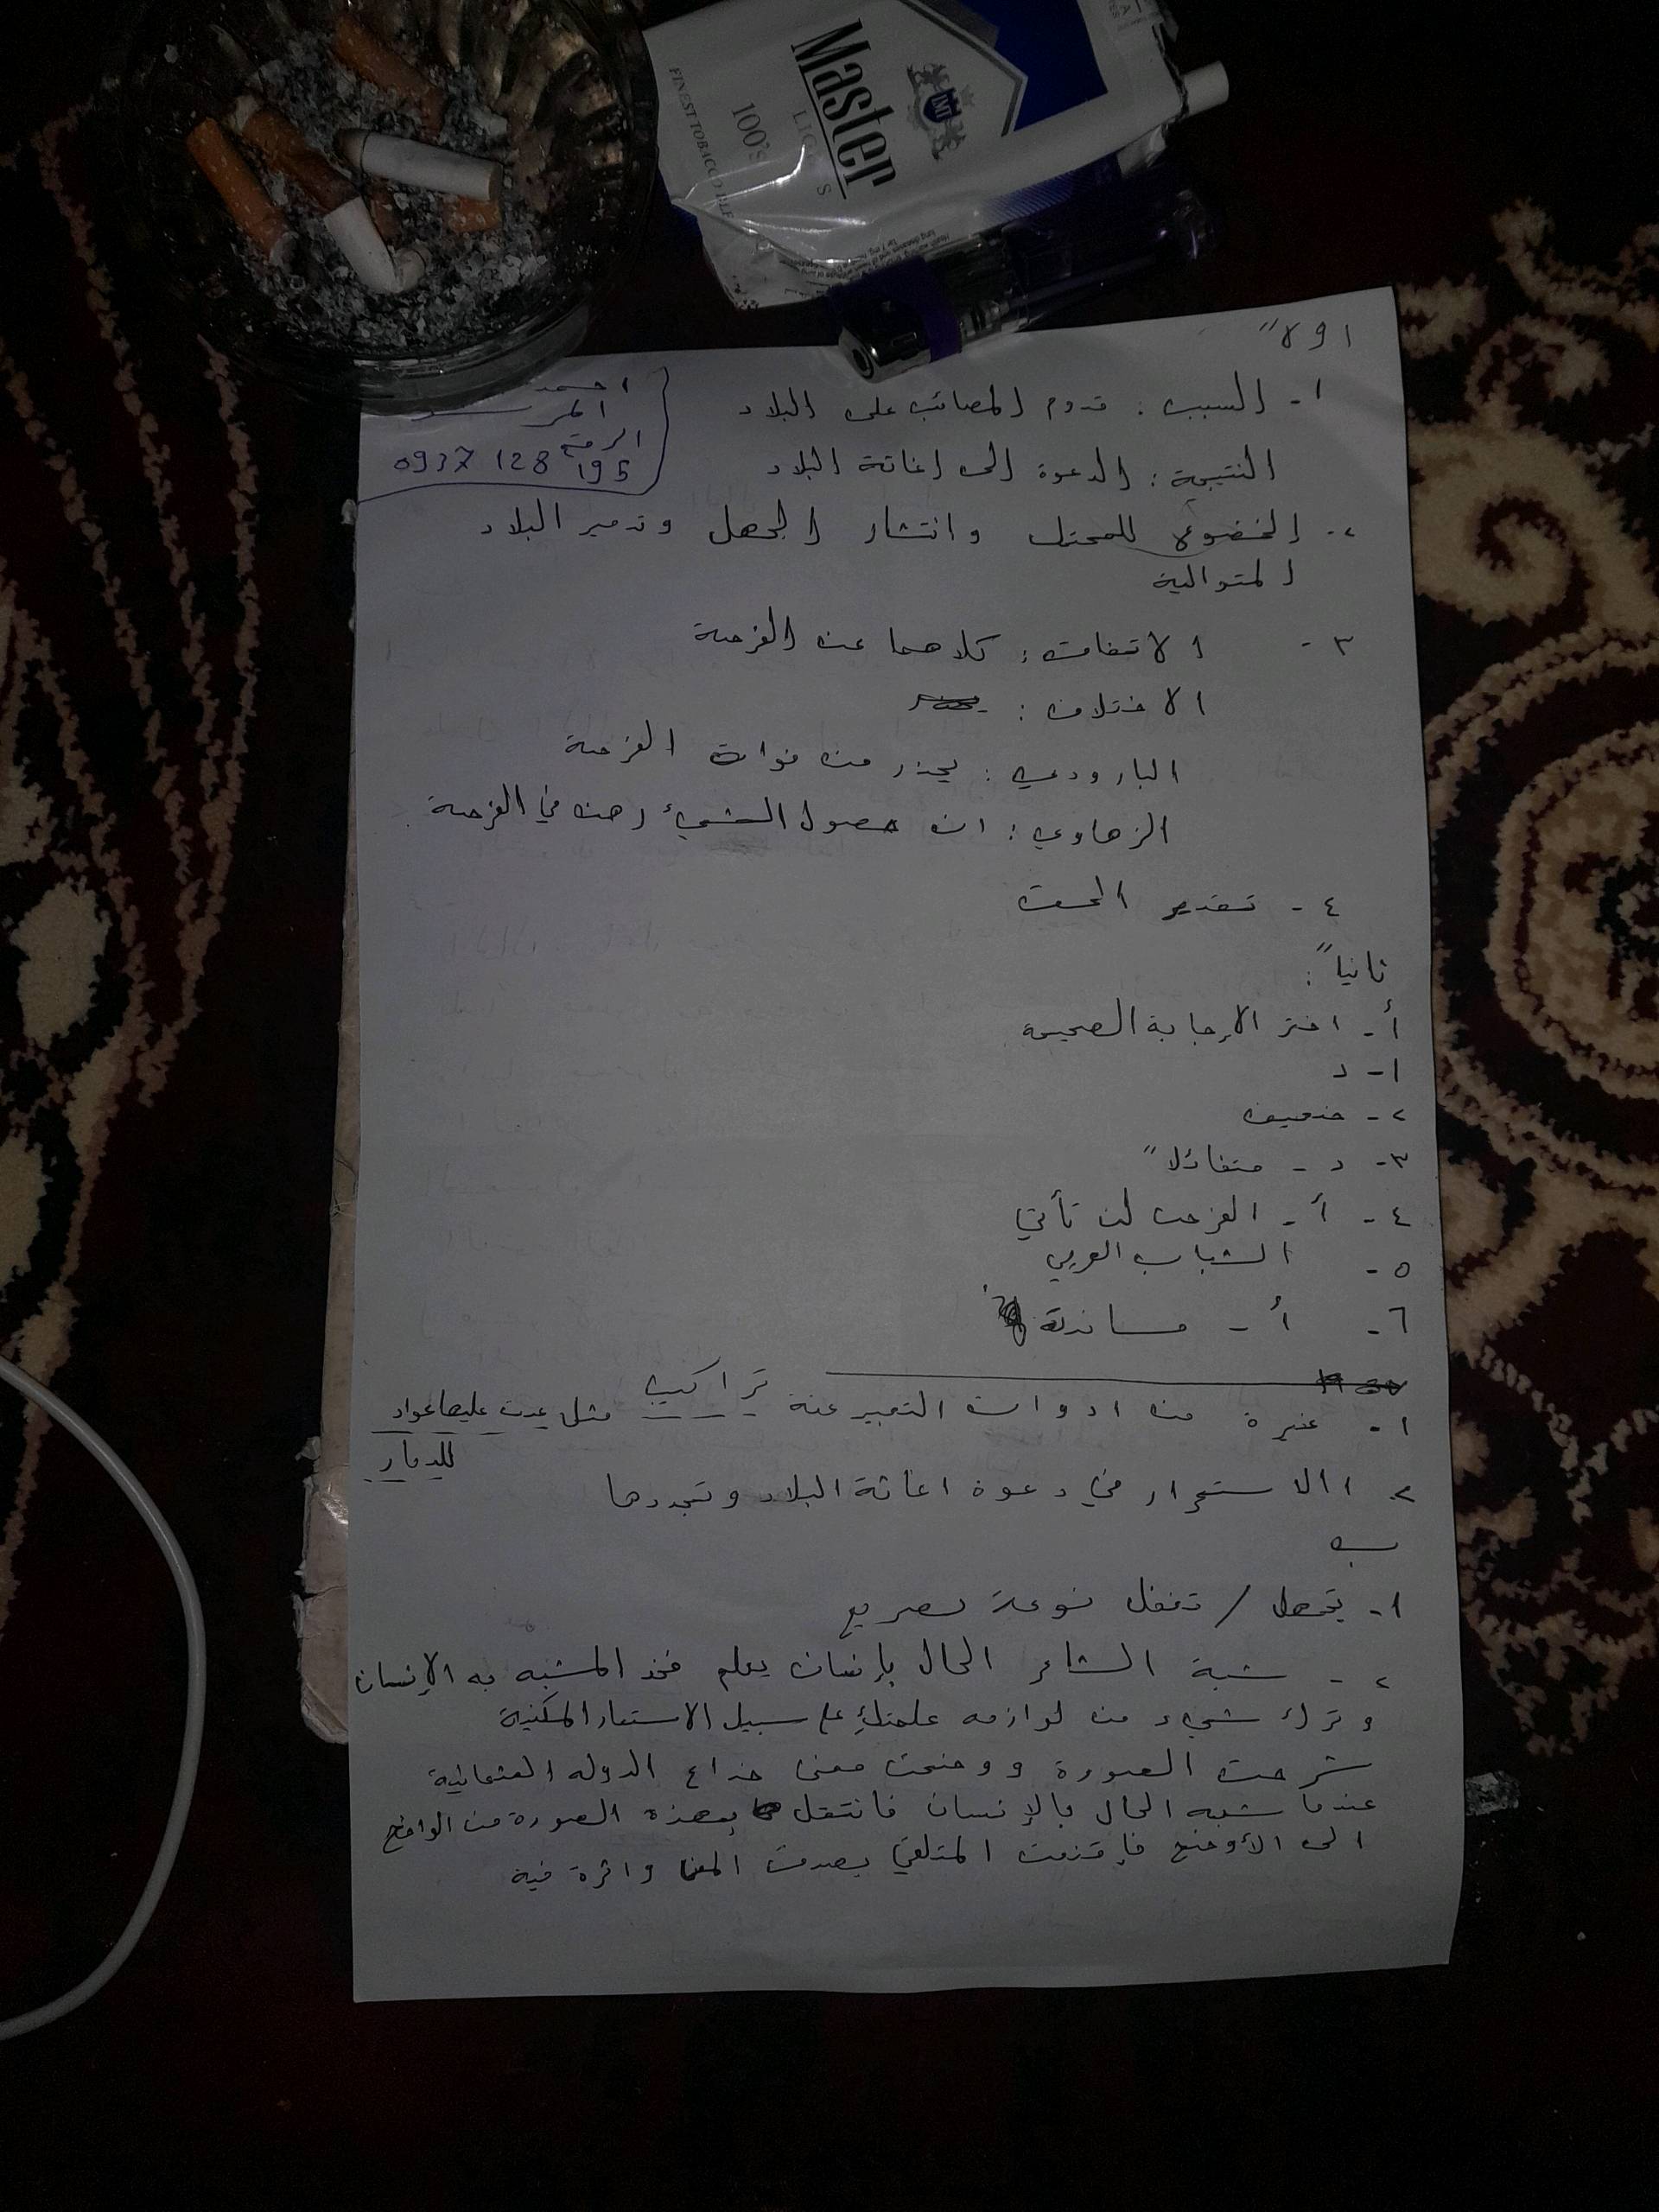 Master
LIGHTS
100's
FINEST TOBACCO
LMT
اولاً
احمد
الرقم
0937 128 195
١- السبب : قدوم المصائب على البلاد
النتيجة : الدعوة الى اغاثة البلاد
٢- الخضوع للمحتل وانتشار الجهل وتدمير البلاد
المتوالية
٣- الاتفاق : كلاهما عن الفرصة
الاختلاف :
البارودي : يحذر من فوات الفرصة
الزهاوي : ان حصول الشيء رهن في الفرصة
٤- تقدير الحق
ثانياً :
أ- اختر الإجابة الصحيحة
١- د
٢- ضعيف
٣- د - متفائلاً
٤- أ- الفرصت لن تأتي
٥- الشباب العربي
٦- أ- مساندة
١- عنيرة من ادوات التعبير عنة تراكيب مثل عدت عليها عواد
للدمار
٢- االاستمرار في دعوة اغاثة البلاد وتجددها
ب
١- تجهل / تغفل نوعة تصريع
٢- شبة الشاعر الحال بإنسان يعلم فحذ المشبه به الإنسان
وترك شيء من لوازمه علمتك على سبيل الاستعار المكنية
شرحت الصورة ووضحت معنى خداع الدوله العثمانية
عندما شبه الحال بالإنسان فانتقل بهذه الصورة من الواضح
الى الأوضح فإقتنعت المتلقي بصدق المعنا واثرة فية